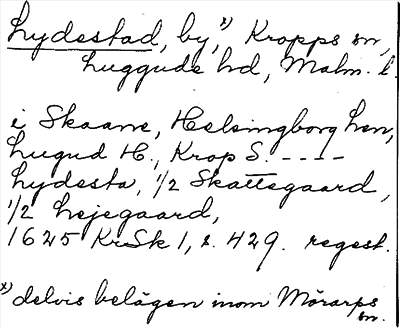 Lydestad, by, x) Kropps sn,
Luggude hd, Malm. l.
i Skaane, Helsingborg Len,
Lugud H., Krop S. ----
Lydesta, 1/2 Skattegaard,
1/2 Lejegaard,
1625 KrSk 1, s. 429. regest.
x) delvis belägen inom Mörarps
sn.